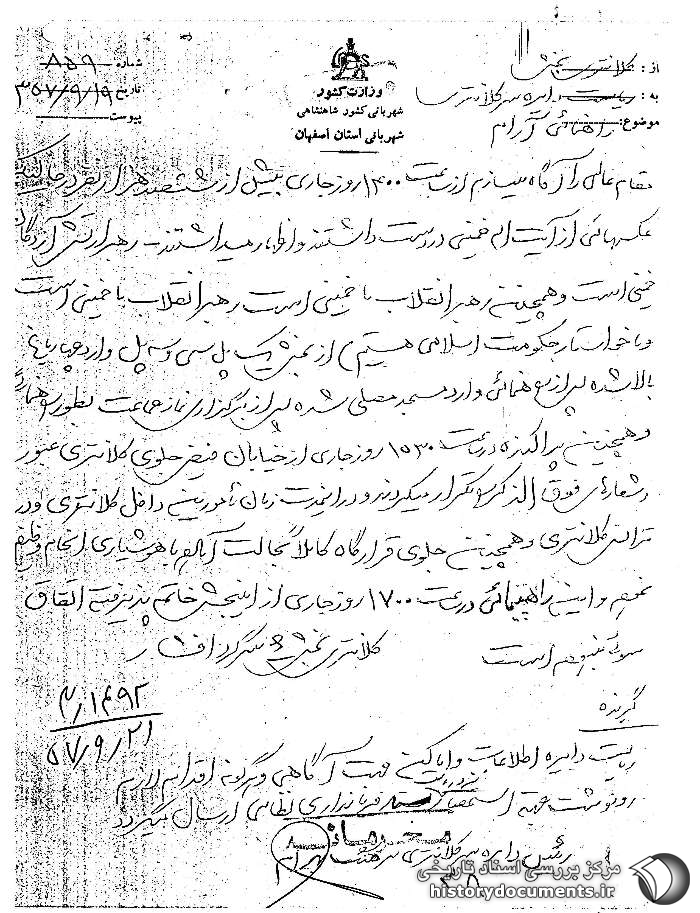 شماره ۸۵۹
تاریخ ۳۵۷/۹/۱۹
پیوست
وزارت کشور
شهربانی کشور شاهنشاهی
شهربانی استان اصفهان
از: کلانتری بخش
به: ریاست دایره سرکلانتری
موضوع: راهنمائی آرام
مقام عالی را آگاه میسازم از ساعت ۱۴۰۰ روز جاری بیش از ششصد هزار نفر در حالیکه
عکسهائی از آیت اله خمینی در دست داشتند و اظهار میداشتند - رهبر ارتش آزادگان
خمینی است و همچنین رهبر انقلاب ما خمینی است رهبر انقلاب ما خمینی است
و ما خواستار حکومت اسلامی هستیم) از بخش یک پل سی و سه پل وارد چهارباغ
بالا شده پس از راه پیمائی وارد مسجد مصلی شده پس از برگزاری نماز جماعت بطور
و همچنین پراکنده در ساعت ۱۵۳۰ روز جاری از خیابان فیض جلوی کلانتری عبور
و شعارهای فوق الذکر را تکرار میکردند و در این مدت زمان مأمورین داخل کلانتری و در
تراس کلانتری و همچنین جلوی قرارگاه کاملا بحالت آماده با هوشیاری انجام وظیفه
نموده و این راهپیمائی در ساعت ۱۷۰۰ روز جاری از این بخش خاتمه پذیرفته اتفاق
سوئی نبوده است
کلانتری بخش ۶ سرگرد افشار
گیرنده
۲/۱۴۹۲
۵۷/۹/۲۱
ریاست دایره اطلاعات و جهت آگاهی و هرگونه اقدام لازم
رونوشت جهة استحضار فرمانداری نظامی ارسال میگردد
رئیس دایره سرکلانتری سرهنگ
مرکز بررسی اسناد تاریخی
historydocuments.ir